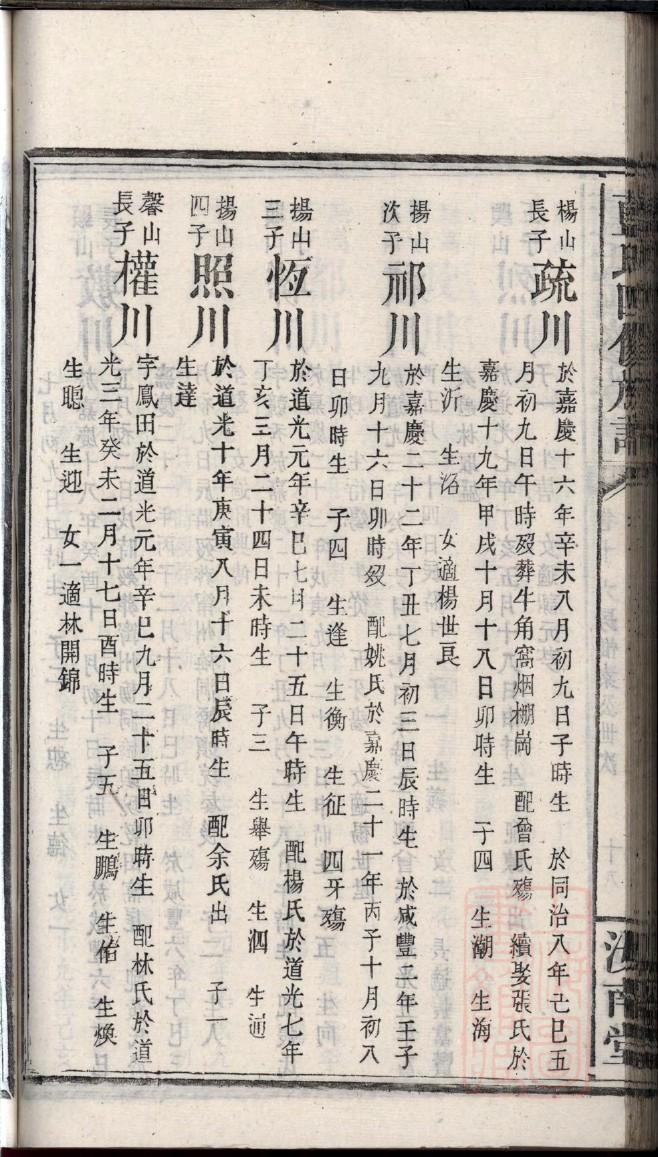 楊山
長子
疏川
於嘉慶十六年辛未八月初九日子時生　於同治八年己巳五
月初九日午時歿葬牛角窩烟棚崗　配曾氏殤　續娶張氏於
嘉慶十九年甲戌十月十八日卯時生　子四　生潮　生海
生沂　生洛　女適楊世良
揚山
次子
祁川
於嘉慶二十二年丁丑七月初三日辰時生　於咸豐元年壬子
九月十六日卯時歿　配姚氏於嘉慶二十一年丙子十月初八
日卯時生　子四　生逢　生衡　生征　四牙殤
揚山
三子
恆川
於道光元年辛巳七月二十五日午時生　配楊氏於道光七年
丁亥三月二十四日未時生　子三　生舉殤　生泗　生涌
揚山
四子
照川
於道光十年庚寅八月十六日辰時生　配余氏出　子一
生達
馨山
長子
權川
字鳳田於道光元年辛巳九月二十五日卯時生　配林氏於道
光三年癸未二月十七日酉時生　子五　生鵬　生佑　生煥
生聰　生迎　女一適林開錦
四修族譜
汝南堂